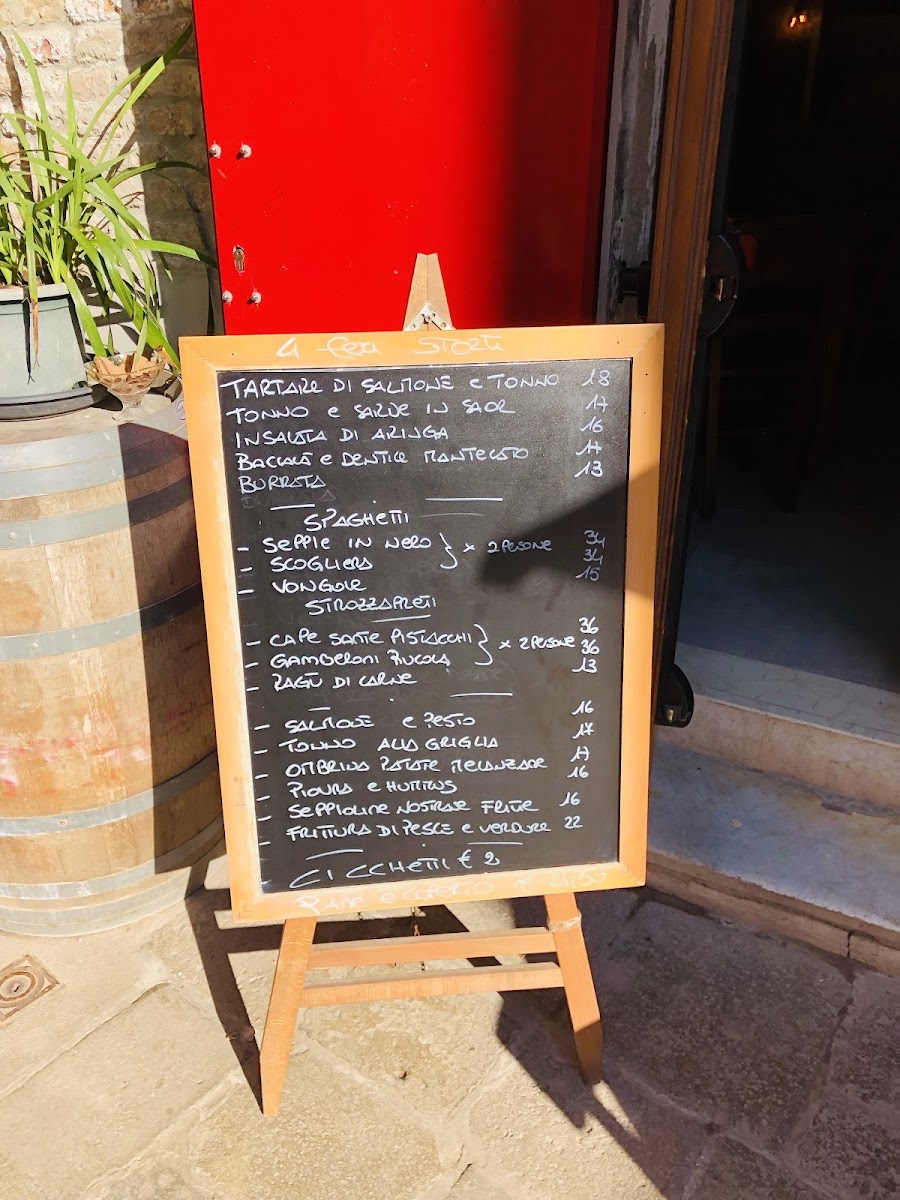 4 feri STORTI
TARTARE DI SALMONE e TONNO 18
TONNO e SARDE IN SAOR 17
INSALATA DI ARINGA 16
BACCALÀ e DENTICE MANTECATO 17
BURRATA 13
SPAGHETTI
- SEPPIE IN NERO } x 2 PERSONE 34
- SCOGLIERA 34
- VONGOLE 15
STROZZAPRETI
- CAPE SANTE PISTACCHI } x 2 PERSONE 36
- GAMBERONI RUCOLA 36
- RAGÙ DI CARNE 13
- SALMONE e PESTO 16
- TONNO ALLA GRIGLIA 17
- OMBRINA PATATE MELANZANE 17
- PIOVRA e HUMMUS 16
- SEPPIOLINE NOSTRANE FRITTE 16
- FRITTURA DI PESCE e VERDURE 22
CICCHETTI € 2
PANE e COPERTO €